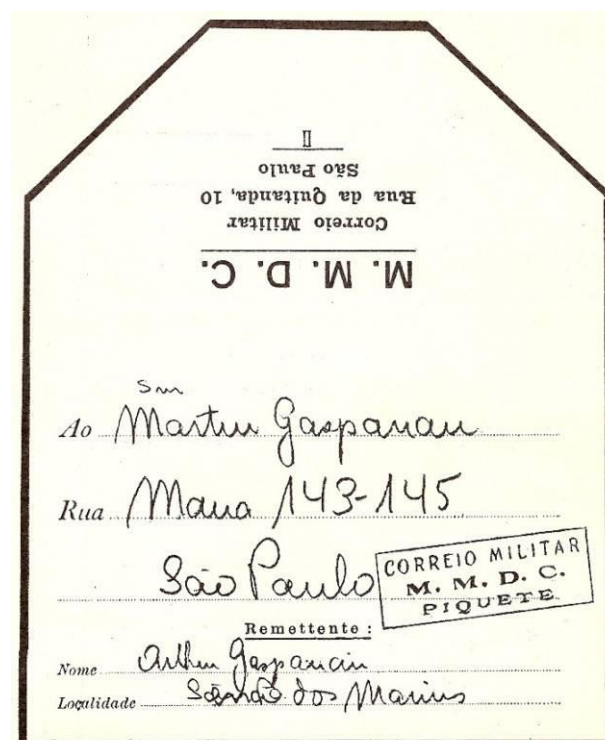 II
São Paulo
Rua da Quitanda, 10
Correio Militar
M. M. D. C.
Snr
Ao Martin Gasparian
Rua Maua 143-145
São Paulo
CORREIO MILITAR
M. M. D. C.
PIQUETE
Remettente:
Nome Arthur Gasparian
Localidade dos Marins